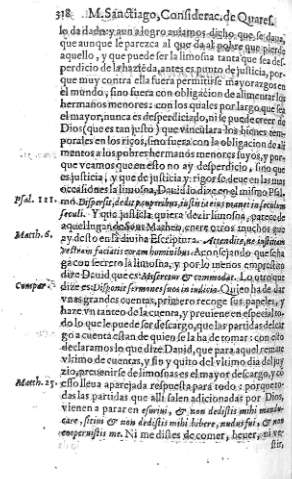 318 M. Sanctiago, Considerac. de Quares.
lo da dado: y aun a logro auiamos dicho que se daua,
que aunque le parezca al que da al pobre que pierde
aquello, y que puede ser la limosna tanta que sea des-
perdicio de la hazienda, antes es punto de justicia, por-
que muy contra ella fuera permitirse mayorazgos en
el mundo, sino fuera con obligacion de alimentar los
hermanos menores: con los quales por largo que sea
el mayor, nunca es desperdiciado, ni se puede creer de
Dios (que es tan justo) que vinculara los bienes tem-
porales en los ricos, sino fuera con la obligacion de ali
mentos a los pobres hermanos menores suyos, y por-
que veamos que en esto no ay desperdicio, sino que
es justicia, y que de justicia y rigor se deue en las mas
occasiones la limosna, Dauid lo dize en el mismo Psal.
Psal. 111. mo. Dispersit, dedit pauperibus, justitia eius manet in seculum
seculi. Y que justicia quiera dezir limosna, parece de
Matth. 6. aquel lugar de Sant Matheo, entre otros muchos que
ay desto en la diuina Escriptura. Attendite, ne iustitiam
vestram faciatis coram hominibus. Aconsejando que se ha
ga con secreto la limosna, y por lo menos emprestito
dize Dauid que es: Miseretur & commodat. Lo otro que
Compar. dize es: Disponit sermones suos in iudicio. Quien ha de dar
vnas grandes cuentas, primero recoge sus papeles, y
haze vn tanteo de la cuenta, y preuiene en especial to-
do lo que le puede ser descargo, que las partidas del car
go a cuenta estan de quien se la ha de tomar: con esto
declaramos lo que dize Dauid, que para aquel remate
vltimo de cuentas, y fin y quito del vltimo dia del juy
zio, preuenirse de limosnas es el mayor descargo, y co
Matth. 25. esso lleua aparejada respuesta para todo: porque to-
das las partidas que alli salen adicionadas por Dios,
vienen a parar en esuriui, & non dedistis mihi mandu-
care, sitiui & non dedistis mihi bibere, nudus fui, & non
cooperuistis me. Ni me distes de comer, beuer, ni ve-
stir,